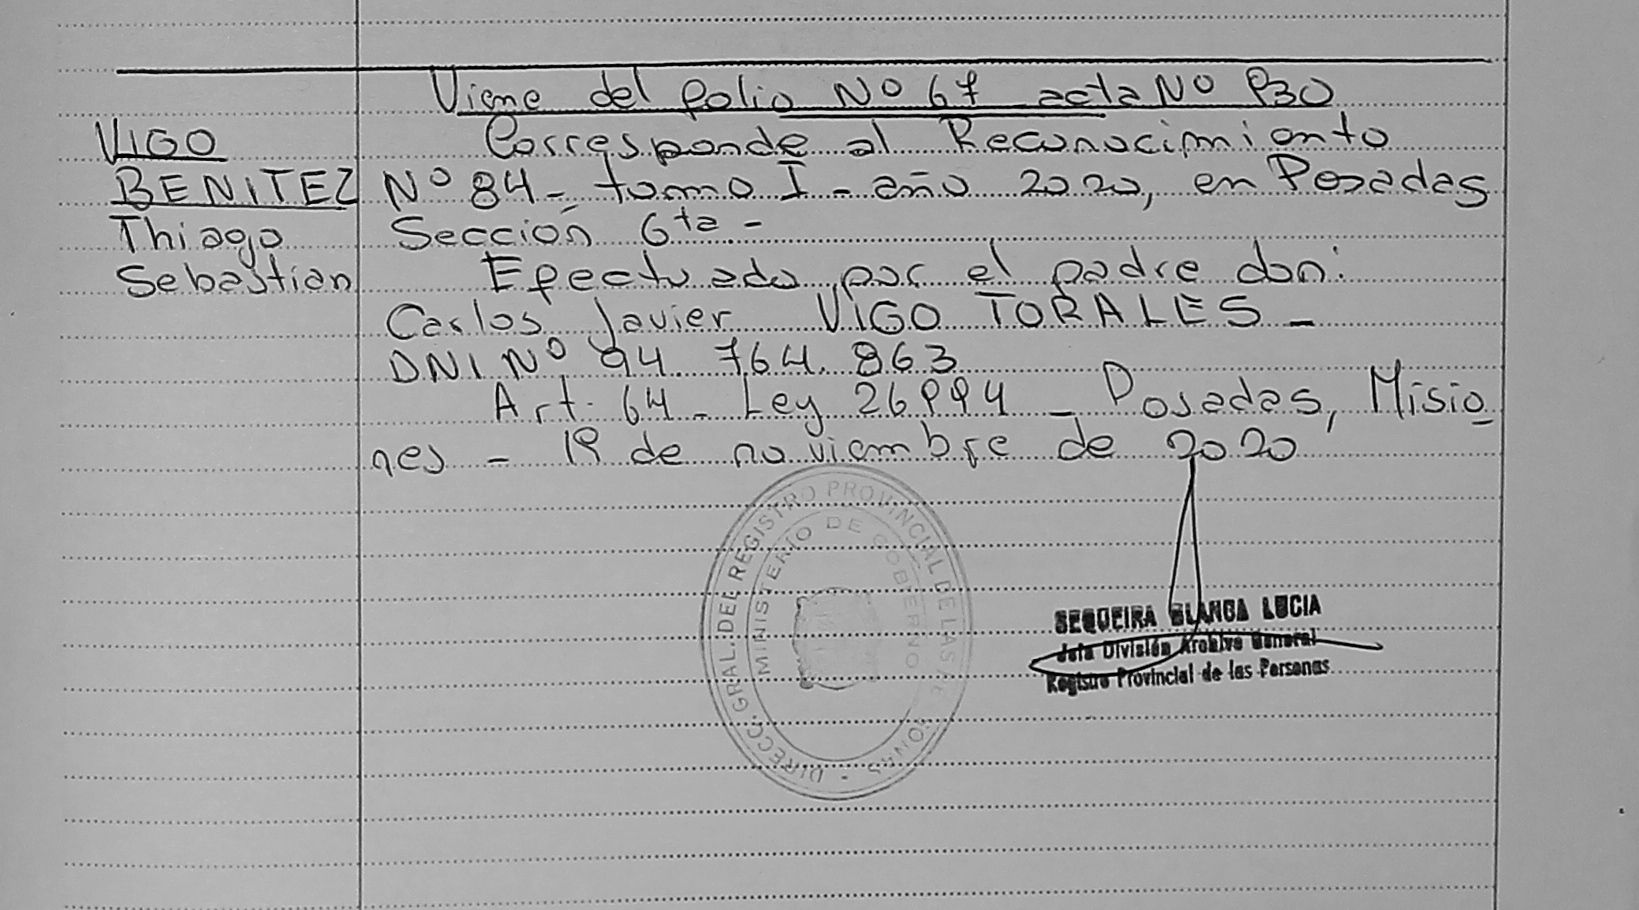 Viene del folio Nº 67 acta Nº 930
VIGO
BENITEZ
Thiago
Sebastian
Corresponde al Reconocimiento
Nº 84 - tomo I - año 2020, en Posadas
Sección 6ta -
Efectuado por el padre don:
Carlos Javier VIGO TORALES -
DNI Nº 94.764.863
Art. 64 - Ley 26994 - Posadas, Misio
nes - 19 de noviembre de 2020
DIRECC. GRAL. DEL REGISTRO PROVINCIAL DE LAS PERSONAS -
MINISTERIO DE GOBIERNO
SEQUEIRA BLANCA LUCIA
Jefa División Archivo General
Registro Provincial de las Personas